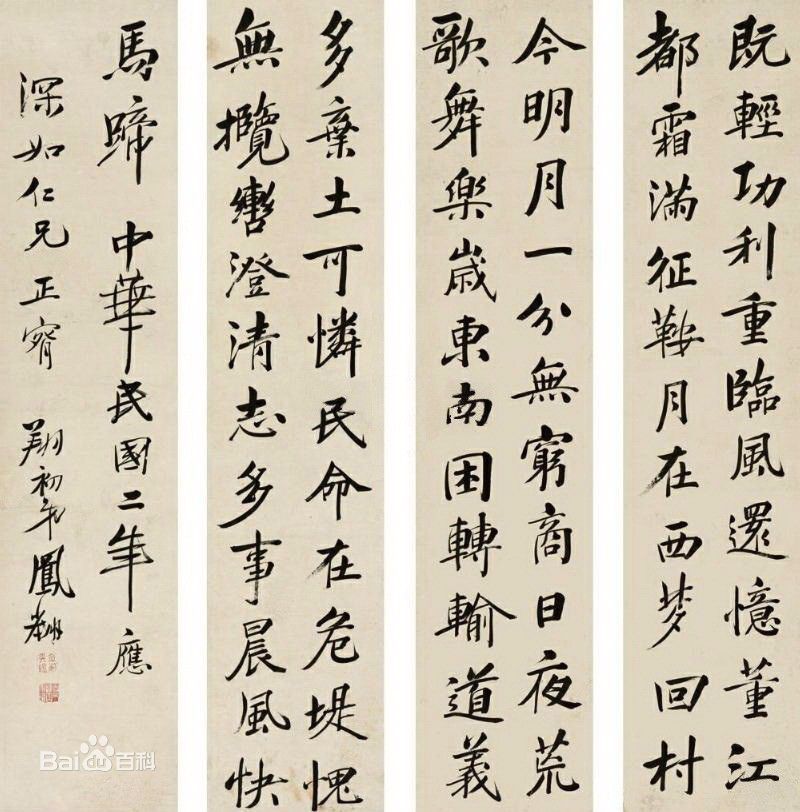 既輕功利重臨風還憶董江
都霜滿征鞍月在西梦回村
今明月一分無窮商日夜荒
歌舞樂歲東南困轉輸道義
多棄土可憐民命在危堤愧
無攬轡澄清志多事晨風快
馬蹄 中華民國二年應
深如仁兄正 翔初弟鳳翽
Bai百科